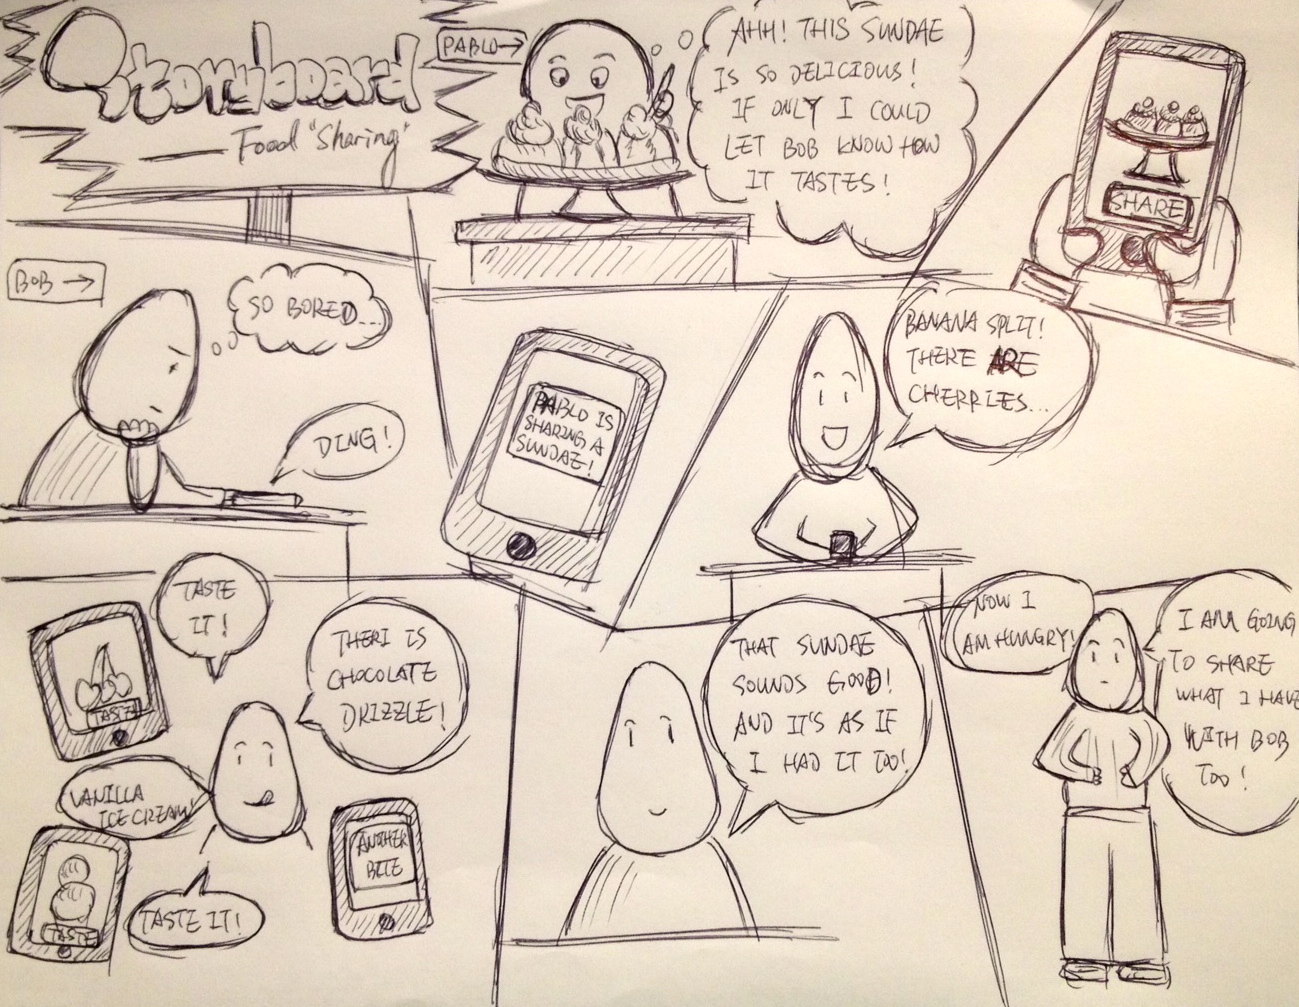 Storyboard
— Food "Sharing"
PABLO→
AHH! THIS SUNDAE
IS SO DELICIOUS!
IF ONLY I COULD
LET BOB KNOW HOW
IT TASTES!
SHARE
BOB →
SO BORED...
DING!
PABLO IS
SHARING A
SUNDAE!
BANANA SPLIT!
THERE ARE
CHERRIES...
TASTE
IT!
TASTE
THERI IS
CHOCOLATE
DRIZZLE!
VANILLA
ICE CREAM!
TASTE
TASTE IT!
ANOTHER
BITE
THAT SUNDAE
SOUNDS GOOD!
AND IT'S AS IF
I HAD IT TOO!
NOW I
AM HUNGRY!
I AM GOING
TO SHARE
WHAT I HAVE
WITH BOB
TOO!